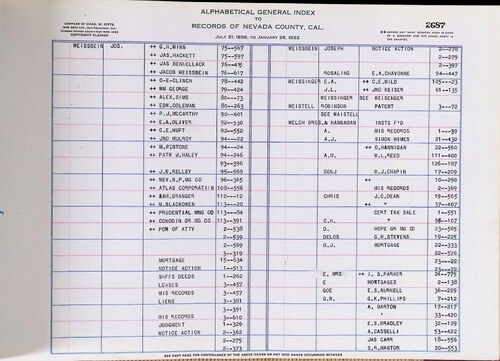 ALPHABETICAL GENERAL INDEX
TO
RECORDS OF NEVADA COUNTY, CAL.
JULY 21, 1856, TO JANUARY 26, 1922
2687
COPYRIGHT CLAIMED
WEISSBEIN JOS. ++ G.H.WINN 75--567 WEISSBEIN JOSEPH NOTICE ACTION 2--278
++ JAS.HACKETT 75--597 2--279
++ JAS BENVELLACK 76--415 2--397
++ JACOB WEISSBEIN 76--617 ROSALING E.A.CHAVONNE 94--447
++ C-E-CLINCH 78--442 WEISSINGER E.A. ++ C.E.WILD 105--23
++ WM GEORGE 79--424 J.L. ++ JNO KEISER 61--135
++ ALEX.SIMS 80--73 WEISSINGER SEE WEISENGER
++ EDW.COLEMAN 80--263 WEISTELL ROBINSON PATENT 3--72
++ P.J.MCCARTHY 90--601 SEE WAISTELL
++ E.A.OLIVER 92--530 WELCH BROS.& HANNARAN INSTS F'D
++ C.E.HUFT 92--552 A. MIS RECORDS 1--39
++ JNO MULROY 94--22 A.J. SIMON HIMES 21--430
++ W.PISTONE 94--24 ++ O.HANNIGAN 22--560
++ PATK J.HALEY 94--246 A.W. W.L.REED 111--400
93--396 126--187
++ J.W.RELLEY 95--569 BENJ W.J.CHAPIN 17--209
++ NEV.& P.MG CO 96--365 ++ " 10--290
++ ATLAS CORPORATION 108--556 MIS RECORDS 2--369
++ S&H.GRANGER 110--12 CHRIS J.C.DEAN 19--565
++ M.BLACKOMEN 113--20 ++ " 37--407
++ PRUDENTIAL MNG CO 113--84 CERT TAX SALE 1--551
++ CONODIN OR MG CO. 113--391 C.H. " 98--107
++ POW OF ATTY 2--538 D. HOPE OR MG CO 23--565
2--539 DELOS G.W.STEVENS 19--225
2--569 D.J. MORTGAGE 22--333
3--319 22--576
MORTGAGE 15--634 23--22
NOTICE ACTION 1--513 23--72
SHFFS DEEDS 1--262 E, MRS ++ I. S.PARKER 24--775
LEASES 3--457 E MORTGAGES 2--138
MIS RECORDS 3--457 GOE E.S.BURNELL 36--229
LIENS 3--381 G.W. G.K.PHILLIPS 7--212
3--391 A. BARTON 17--217
MIS RECORDS 3--610 " 33--420
JUDGMENT 1--326 E.S.BRADLEY 32--129
NOTICE ACTION 2--362 A.CASSELLI 53--422
2--275 JAS CARR 18--556
2--373 S.R.WANTON 20--551
SEE NEXT PAGE FOR CONTINUANCE OF THE ABOVE NAMES OR ANY NEW NAMES OCCURRING BETWEEN